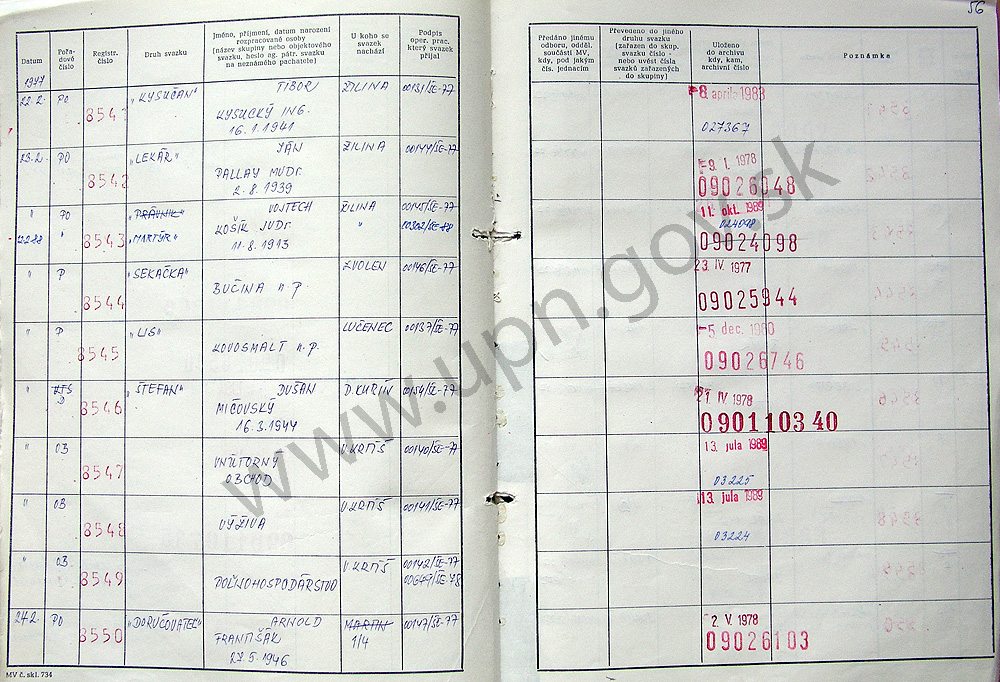 56
Datum
Pořa-
dové
číslo
Registr.
číslo
Druh svazku
Jméno, příjmení, datum narození
rozpracované osoby
(název skupiny nebo objektového
svazku, heslo ag. pátr. svazku
na neznámého pachatele)
U koho se
svazek
nachází
Podpis
oper. prac.
který svazek
přijal
Předáno jinému
odboru, odděl.
součásti MV,
kdy, pod jakým
čís. jednacím
Převedeno do jiného
druhu svazku
(zařazen do skup.
svazku číslo -
nebo uvést čísla
svazků zařazených
do skupiny)
Uloženo
do archivu
kdy, kam,
archivní číslo
Poznámka
1977
22.2. PO 8541 „KYSUČAN" TIBOR ŽILINA 00131/ŠE-77
KYSUCKÝ ING.
16.1.1941
8. apríla 1983
027367
23.2. PO 8542 „LEKÁR" JÁN ŽILINA 00144/ŠE-77
PALLAY MUDr.
2.8.1939
-9. I. 1978
09026048
" PO 8543 „PRÁVNIK" VOJTECH ŽILINA 00145/ŠE-77
" „MARTÝR" KOŠÍK JUDr. " 00302/ŠE-88
11.8.1913
11. okt. 1989
024098
09024098
" P 8544 „SEKAČKA" ZVOLEN 00146/ŠE-77
BUČINA n.p.
23. IV. 1977
09025944
" P 8545 „LIS" LUČENEC 00137/ŠE-77
KOVOSMALT n.p.
-5. dec. 1980
09026746
" 8546 „ŠTEFAN" DUŠAN D. KUBÍN 00154/ŠE-77
MIČOVSKÝ
16.3.1944
21. IV 1978
0901103 40
" OB 8547 V. KRTÍŠ 00140/ŠE-77
VNÚTORNÝ
OBCHOD
13. júla 1989
03225
" OB 8548 V. KRTÍŠ 00141/ŠE-77
VÝŽIVA
13. júla 1989
03224
" OB 8549 V. KRTÍŠ 00142/ŠE-77
POĽNOHOSPODÁRSTVO 00649/ŠE-78
24.2. PO 8550 „DORUČOVATEĽ" ARNOLD MARTIN 00147/ŠE-77
FRANTIŠÁK 1/4
27.5.1946
2. V. 1978
09026103
MV č. skl. 734
www.upn.gov.sk